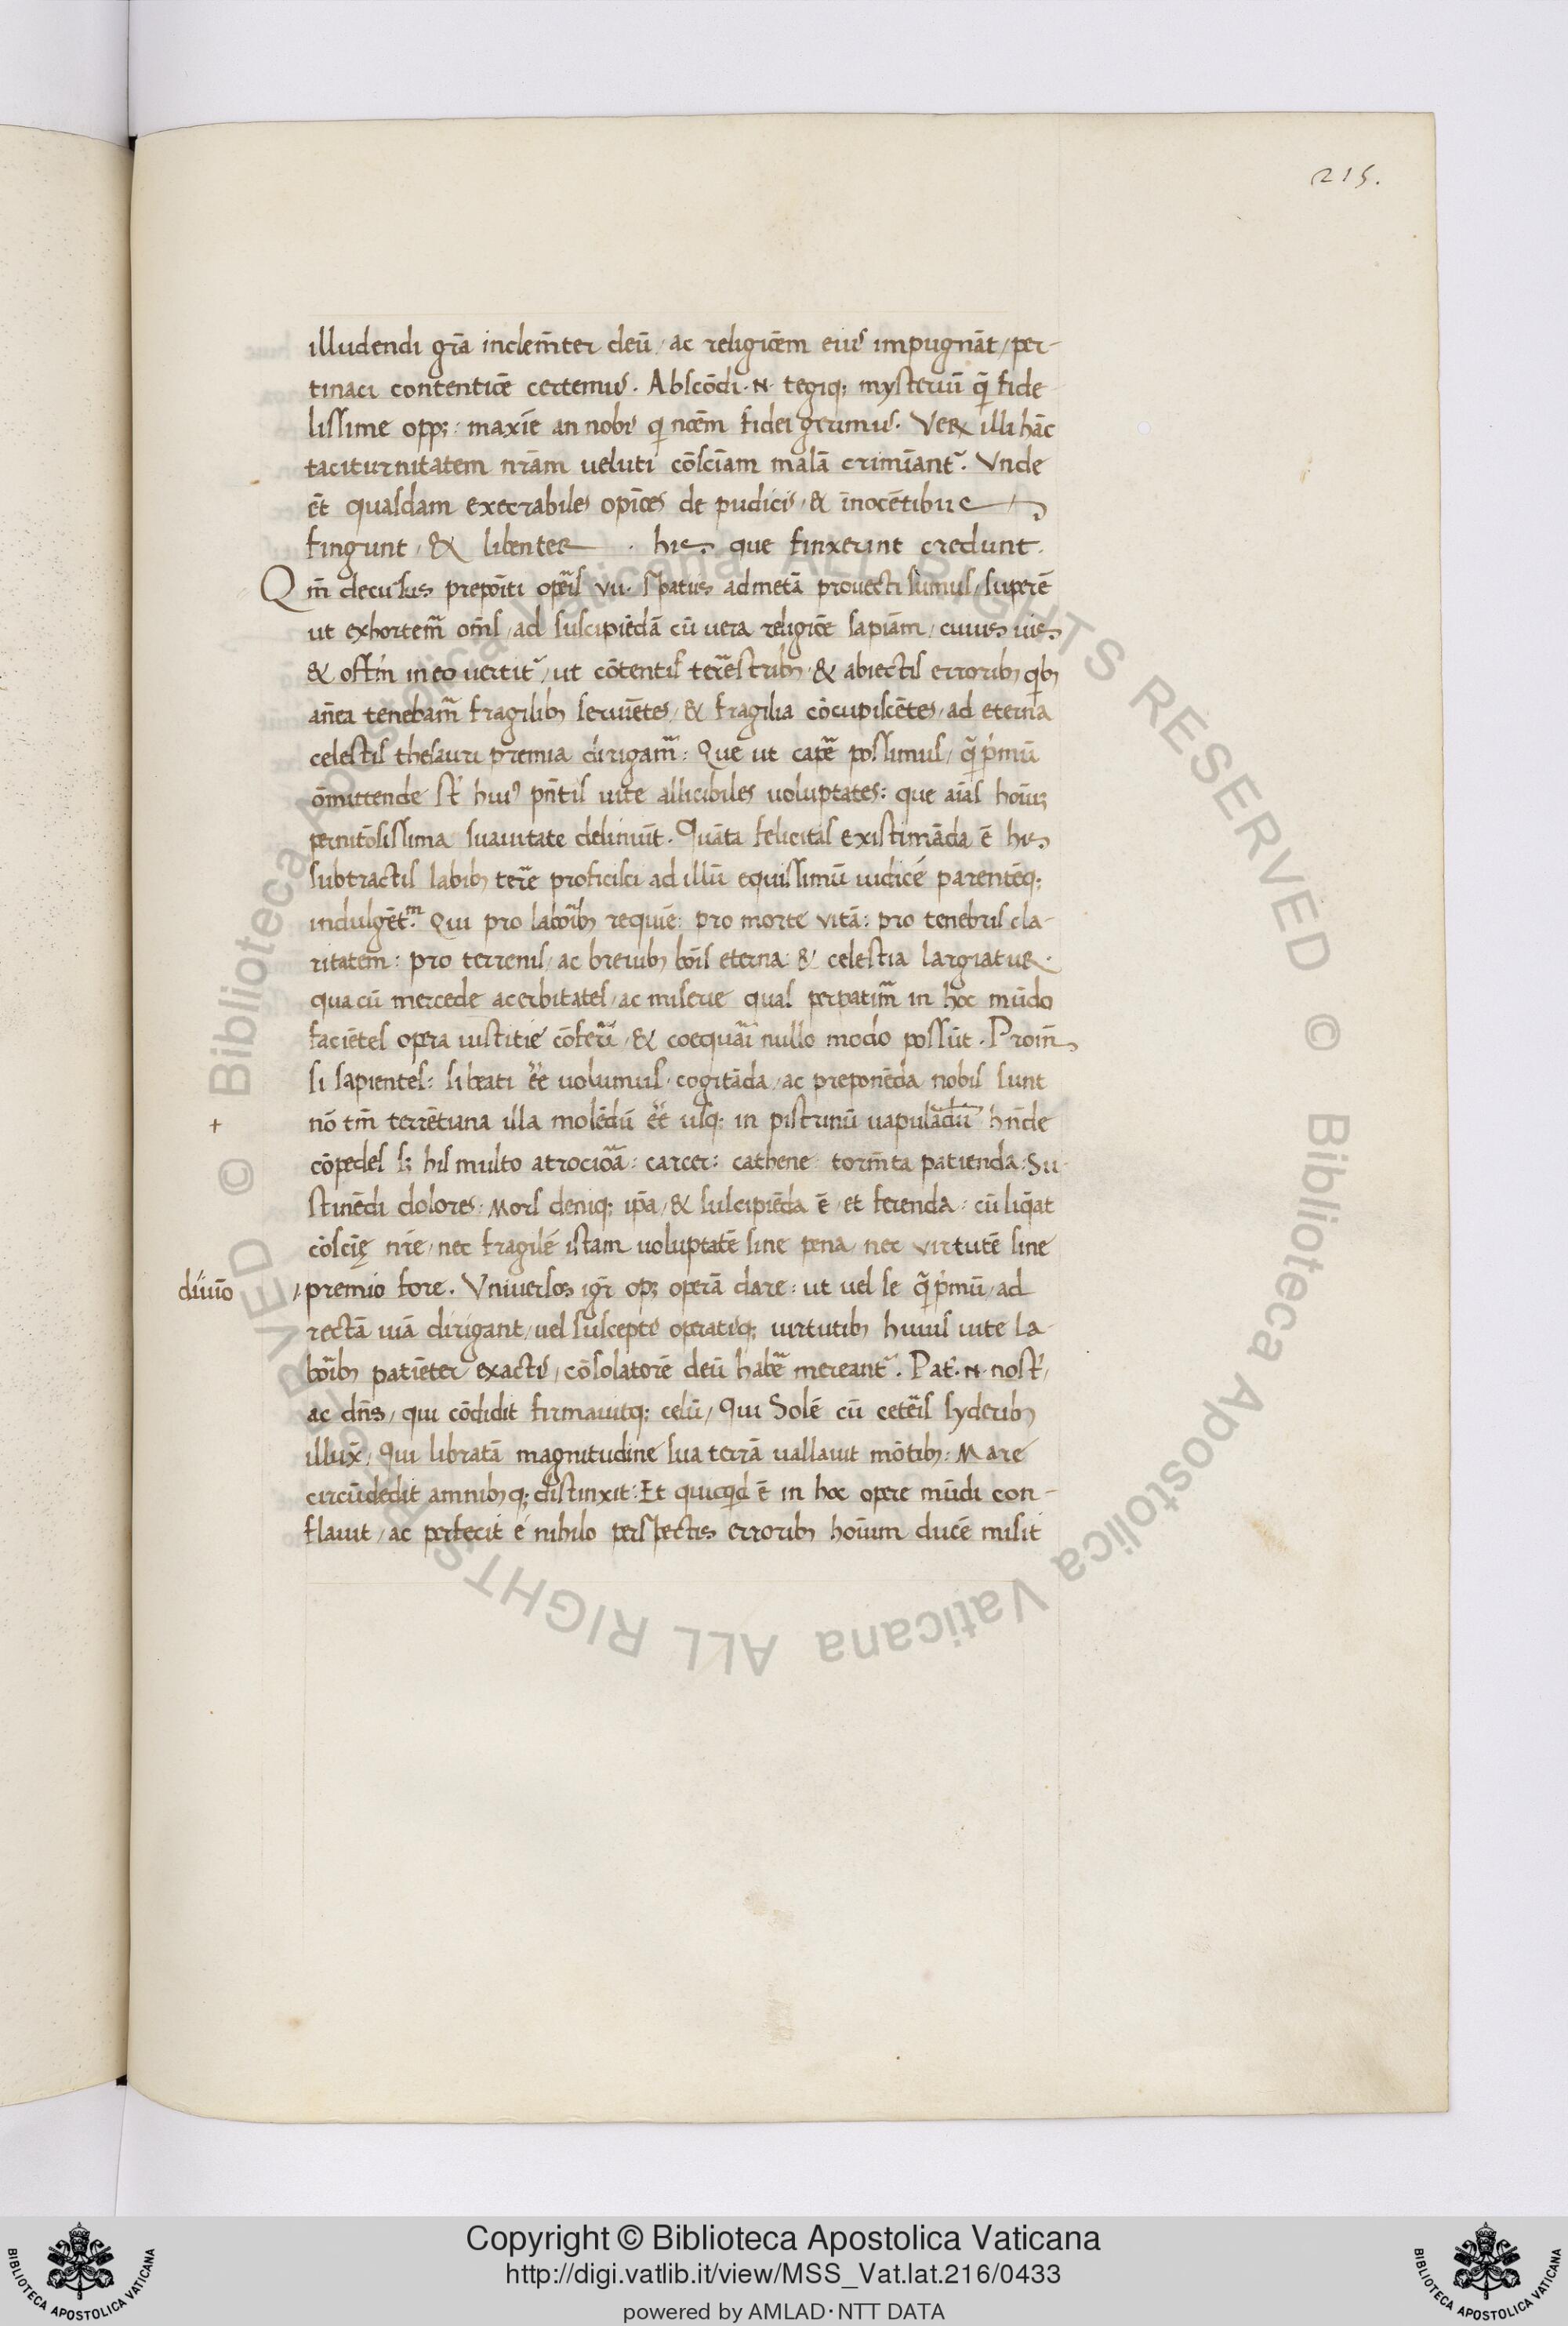 215.
illudendi gr̄a inclem̄ter deū / ac religiōem eius impugnāt / per-
tinaci contentiōe certemus. Abscōdi .N. tegiq; mysteriū q̄ fide
lissime opp;: maxīe an nobis qi noēm fidei gerimus. Veꝝ illi hāc
taciturnitatem nr̄am ueluti cōsciam malā crimīant᷑. Vnde
ēt quasdam execrabiles opīōes de pudicis / & īnocētibus
fingunt / & libenter . his que finxerint credunt.
Qm̄ decursis prepoīti operis vii. spatiis ad metā prouecti sumus / superē
ut exhortem᷑ om̄s / ad suscipiēdā cū uera religiōe sapiām / cuius uis
& offm̄ in eo uertit᷑ / ut cōtentis terrestribꝫ & abiectis erroribꝫ qibꝫ
an̄ea tenebam᷑ fragilibꝫ seruiētes / & fragilia cōcupiscētes / ad eterna
celestis thesauri premia dirigam᷑: Que ut capere possimus / q̄ p̓mū
ōmittende st̄ huiꝰ pn̄tis uite allicibiles uoluptates: que aīas hoīu;
pernitōsissima suauitate deliniūt. Quāta felicitas existimāda ē his
subtractis labibꝫ terre proficisci ad illū equissimū iudicē parentēq;
indulgētm. Qui pro laboribꝫ requiē: pro morte vitā: pro tenebris cla-
ritatem: pro terrenis / ac breuibꝫ bōis eterna & celestia largiatur.
qua cū mercede acerbitates / ac miserie quas perpatim᷑ in hoc mūdo
faciētes opera iustitie cōferri / & coequari nullo modo possūt. Proin̄
si sapientes: si beati ēe uolumus cogitāda / ac preponēda nobis sunt
+ nō tm̄ terrētiana illa molēdū ēe usq; in pistrinū uapulādū hn̄de
cōpedes s; his multo atrociora: carcer: cathene torm̄ta patienda. Su-
stinēdi dolores: Mors deniq; ip̄a / & suscipiēda ē / et ferenda: cū liq̄at
cōsciē nr̄e / nec fragilē istam uoluptatē sine pena / nec virtutē sine
diuīo / premio fore. Vniuersos igr̄ op; operā dare: ut uel se q̄ p̓mū / ad
rectā uiā dirigant / uel susceptis operatisq; uirtutibꝫ huius uite la-
boribꝫ patiēter exactis / cōsolatorē deū habere mereant᷑. Pat̓ .N. nost̓ /
ac dn̄s / qui cōdidit firmauitq; celū / Qui Solē cū ceteris syderibꝫ
illux̄ / Qui libratā magnitudine sua terrā uallauit mōtibꝫ: Mare
circūdedit amnibꝫq; distinxit: Et quicqid ē in hoc opere mūdi con-
flauit / ac perfecit e nihilo perspectis erroribꝫ hoīum ducē misit
Copyright © Biblioteca Apostolica Vaticana
http://digi.vatlib.it/view/MSS_Vat.lat.216/0433
powered by AMLAD·NTT DATA
BIBLIOTECA APOSTOLICA VATICANA
BIBLIOTECA APOSTOLICA VATICANA
© Biblioteca Apostolica Vaticana ALL RIGHTS RESERVED © Biblioteca Apostolica Vaticana ALL RIGHTS RESERVED